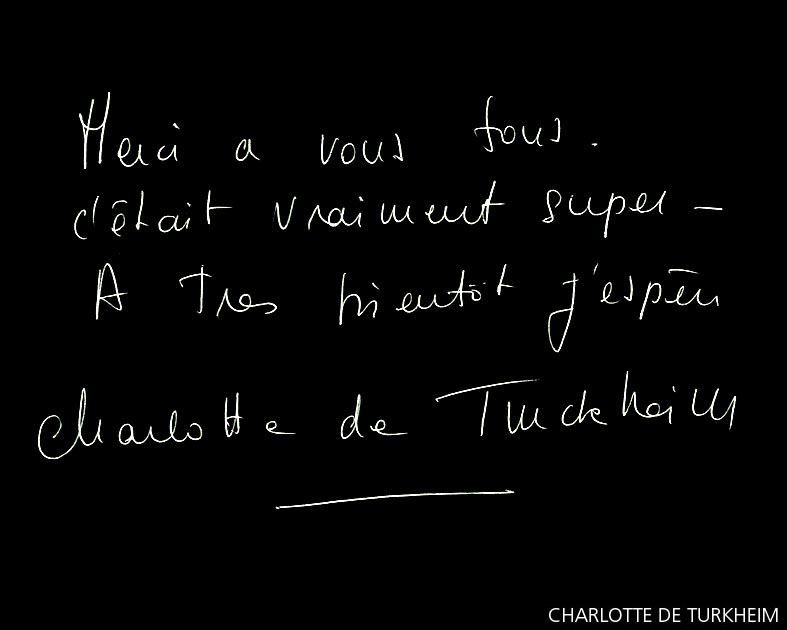 Merci a vous tous.
c'était vraiment super –
A Tres bientôt j'espère
Charlotte de Turckheim
CHARLOTTE DE TURKHEIM